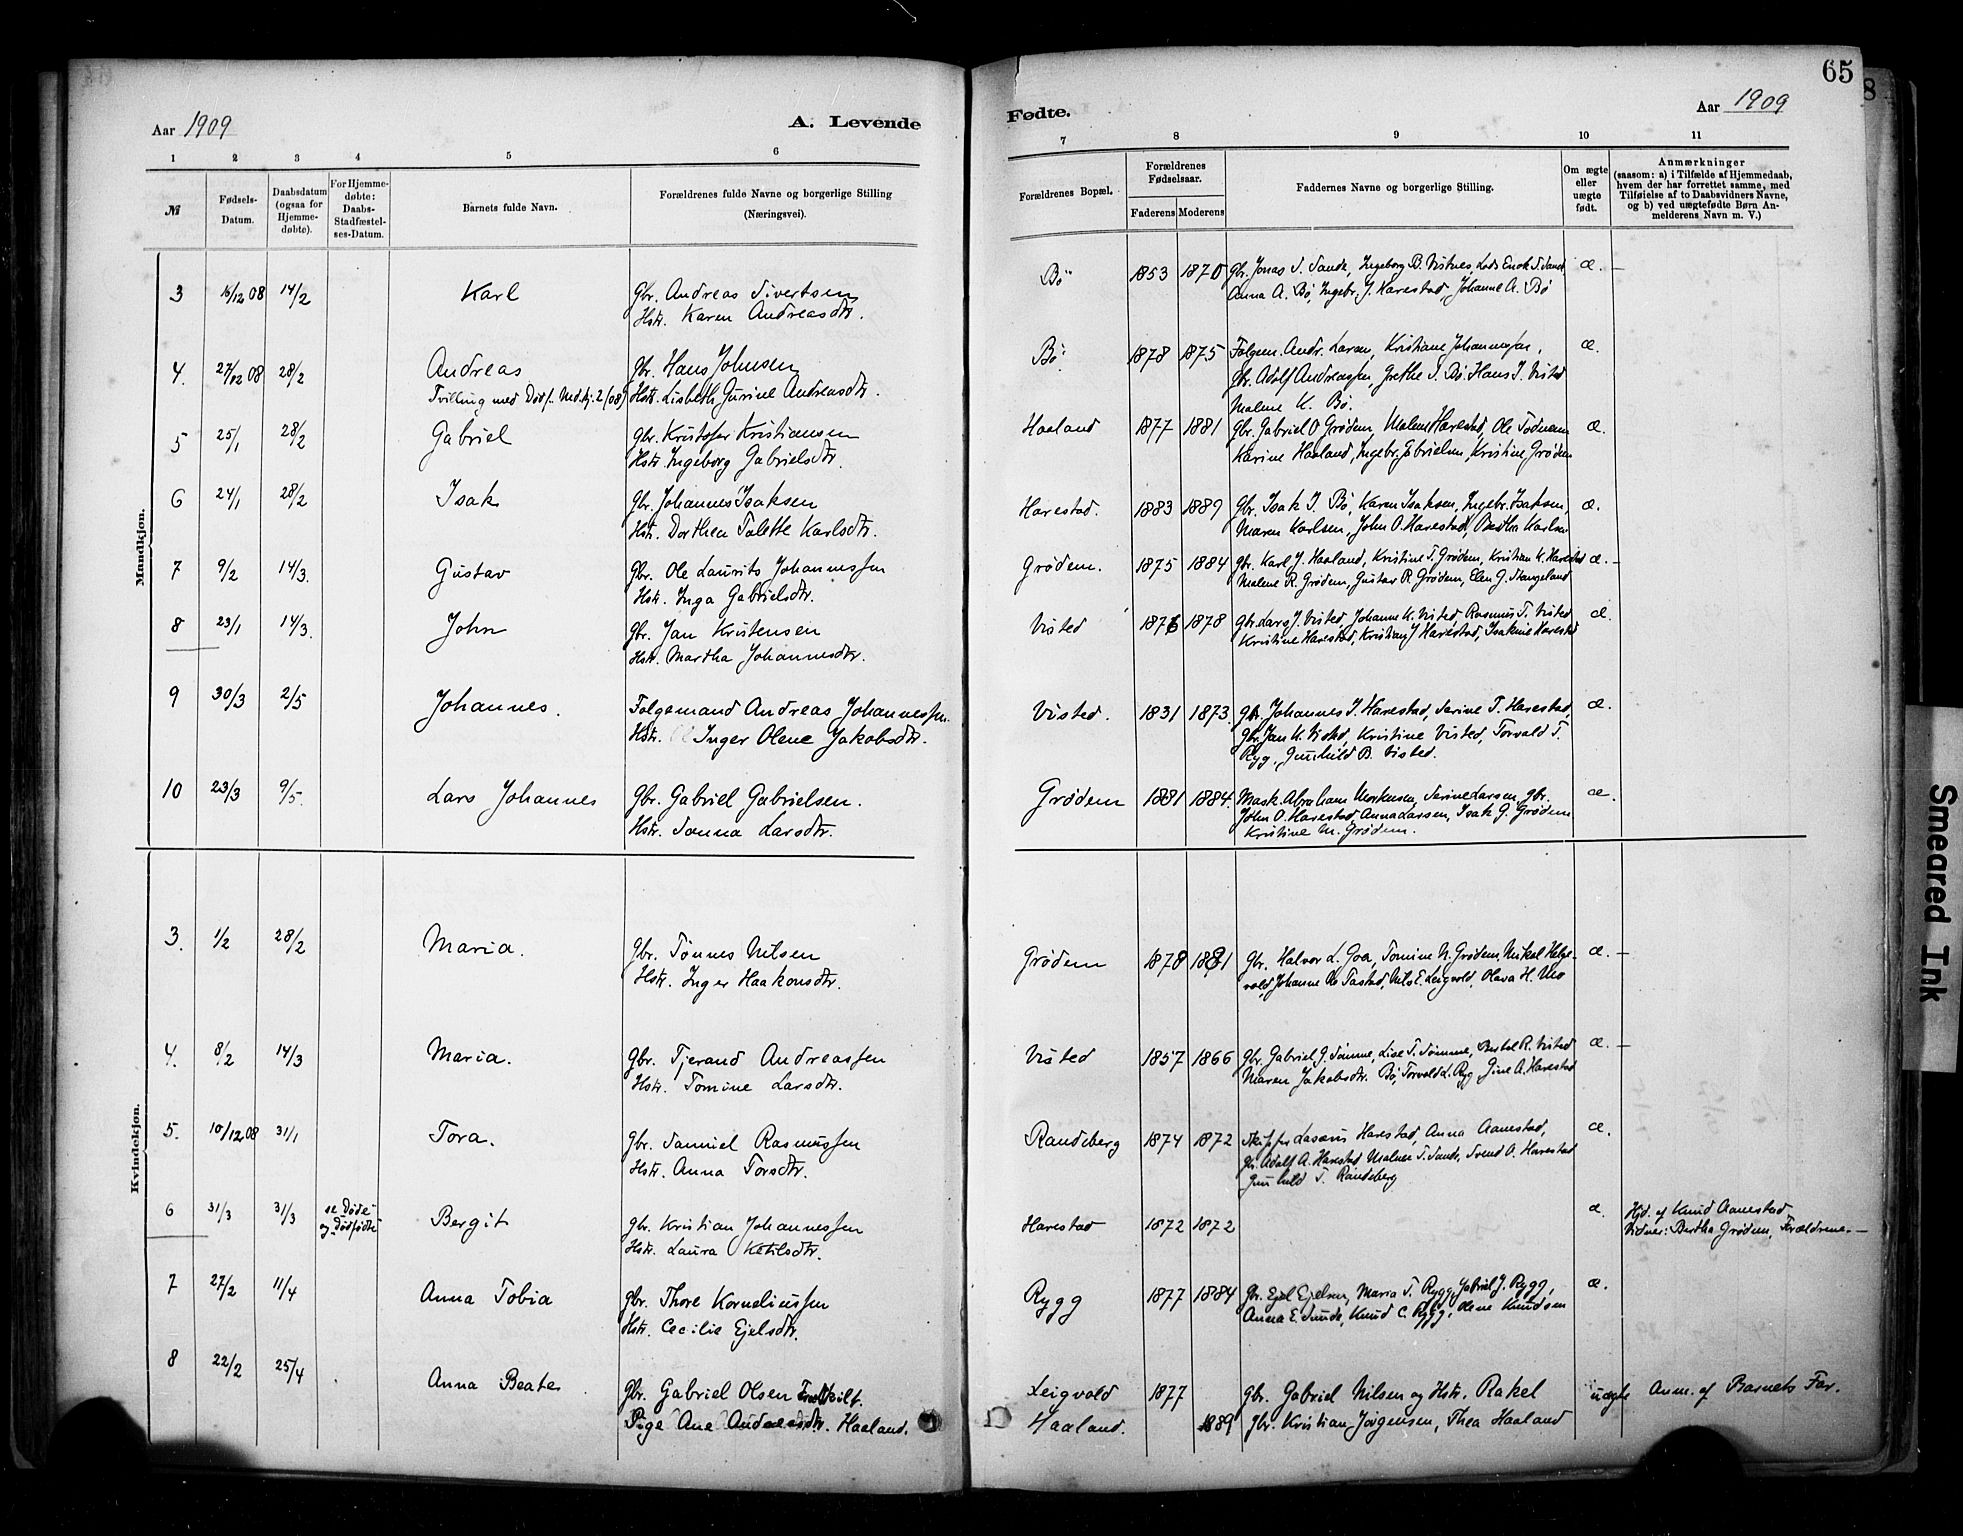 65
8
Aar 1909
A. Levende
Fødte.
Aar 1909
1 2 3 4 5 6
7 8 9 10 11
№
Fødsels-
Datum.
Daabsdatum
(ogsaa for
Hjemme-
døbte).
For Hjemme-
døbte:
Daabs-
Stadfæstel-
ses-Datum.
Barnets fulde Navn.
Forældrenes fulde Navne og borgerlige Stilling
(Næringsvei).
Forældrenes Bopæl.
Forældrenes
Fødselsaar.
Faderens Moderens
Faddernes Navne og borgerlige Stilling.
Om ægte
eller
uægte
født.
Anmærkninger
(saasom: a) i Tilfælde af Hjemmedaab,
hvem der har forrettet samme, med
Tilføielse af to Daabsvidners Navne,
og b) ved uægtefødte Børn An-
melderens Navn m. V.)
Mandkjøn.
3 16/12 08 14/2 Karl Gbr. Andreas Sivertsen
Hstr. Karen Andreasdtr.
Bö 1853 1870 Gbr. Jonas S. Sande, Ingeborg B. Vistnes, Lods Enok T. Sande æ. –
Anna A. Bö, Ingebr. J. Harestad, Johanne A. Bö
4. 27/12 08 28/2 Andreas Gbr. Hans Johnsen
Tvilling med Dødf. Md.kj. 2/08 Hstr. Lisbeth Gurine Andreasdtr.
Bö 1878 1875 Folgem. Andr. Larsen, Kristiane Johannessen, æ.
Gbr. Adolf Andreassen, Grethe S. Bö. Hans J. Visted
Malene K. Bö.
5 25/1 28/2 Gabriel Gbr. Kristofer Kristiansen
Hstr. Ingeborg Gabrielsdtr.
Haaland 1877 1881 Gbr. Gabriel O Grødem, Malene Harestad, Ole Todnem æ.
Karine Haaland, Ingebr. Gabrielsen, Kristine Grødem
6 24/1 28/2 Isak Gbr. Johannes Isaksen
Hstr. Dorthea Talette Karlsdtr.
Harestad. 1883 1889 Gbr. Isak I. Bö, Karen Isaksen, Ingebr. Isaksen, æ.
Maren Karlsen, John O. Harestad, Bertha Karlsen
7 9/2 14/3. Gustav Gbr. Ole Laurits Johannessen
Hstr. Inga Gabrielsdtr.
Grødem. 1875 1884 Gbr. Karl J. Haaland, Kristine T. Grødem, Kristian K. Harestad æ. –
Malene R. Grødem, Gustav R. Grødem, Elen G. Stangeland
8 23/1 14/3. John Gbr. Jan Kristensen
Hstr. Martha Johannesdtr.
Visted 1876 1878 Gbr. Lars J. Visted, Johanne K. Visted, Rasmus T. Visted æ.
Kristine Harestad, Kristian J Harestad, Isakine Harestad
9 30/3 2/5 Johannes. Folgemand Andreas Johannessen.
Hstr. Inger Olene Jakobsdtr.
Visted. 1831 1873. Gbr. Johannes T. Harestad, Serine T. Harestad, æ.
Gbr. Jan K. Visted, Kristine Visted, Torvald T.
Ryg, Gunhild B. Visted.
10 23/3 9/5. Lars Johannes Gbr. Gabriel Gabrielsen.
Hstr. Sanna Larsdtr.
Grødem 1881 1884. Mask. Abraham Morkensen, Serine Larsen, gbr. æ.
John O. Harestad, Anna Larsen, Isak G. Grødem
Kristine M. Grødem.
Kvindekjøn.
3. 1/2 28/2 Maria. Gbr. Tönnes Nilsen
Hstr. Inger Haakonsdtr.
Grødem 1878 1881 Gbr. Halvor L. Goa, Tomine N. Grødem, Mikal Helge- æ. –
vold, Johanne Tastad, Nils E. Leigvold, Olava H. Mo
4. 8/2 14/3 Maria. Gbr. Tjerand Andreassen
Hstr. Tomine Larsdtr.
Visted 1857 1866 Gbr. Gabriel G. Sømme, Lise T. Sømme, Bertel R. Visted æ. –
Maren Jakobsdtr. Bö, Torvald L. Ryg, Gine A. Harestad
5. 10/12 08 31/1 Tora. Gbr. Samuel Rasmussen
Hstr. Anna Torsdtr.
Randeberg 1874 1872 Skipper Lasarus Harestad, Anna Aanestad, æ.
Gbr. Adolf A. Harestad Malene T. Sande, Svend O. Harestad
Gunhild T. Randeberg
6 31/3 31/3 se "Døde"
og "Dødfødte" Bergit Gbr. Kristian Johannessen
Hstr. Laura Ketilsdtr.
Harestad 1872 1872 æ. Hjd. af Knud Aanestad
Vidner: Bertha Grødem, Forældrene. –
7 27/2 11/4 Anna Tobia Gbr. Thore Korneliussen
Hstr. Cecilie Ejelsdtr.
Rygg 1877 1884 Gbr. Ejel Ejelsen, Maria T. Rygg, Gabriel J. Rygg, æ.
Anna E. Sunde, Knud C. Rygg, Olene Knudsen
8 22/2 25/4 Anna Beate Gbr. Gabriel Olsen Fraskilt.
Pige Ane Andreasdtr. Haaland.
Leigvold 1877 Gbr. Gabriel Nilsen og Hstr. Rakel uægte Anm. af Barnets Far.
Haaland. 1889 Gbr. Kristian Jørgensen, Thea Haaland
Smeared Ink